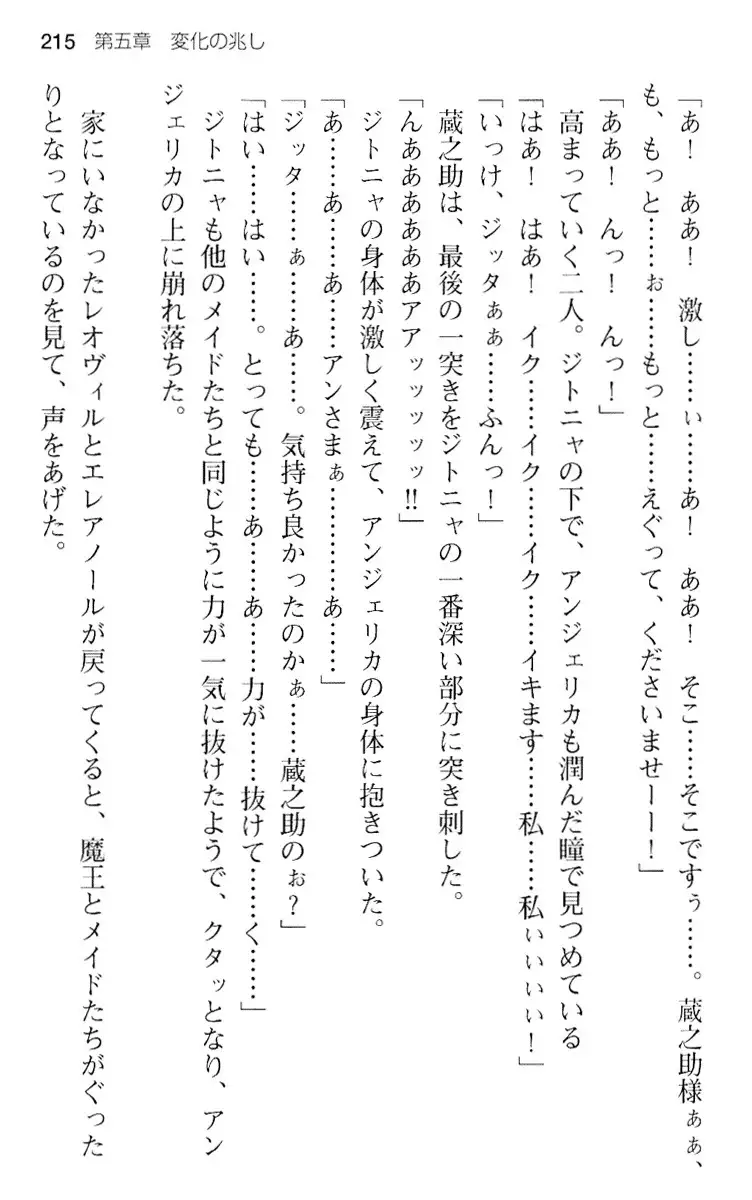 215 第五章 変化の兆し
「あ！ ああ！ 激し……ぃ……あ！ ああ！ そこ……そこですぅ……。蔵之助様ぁぁ、
も、もっと……ぉ……もっと……えぐって、くださいませーー！」
「ああ！ んっ！ んっ！」
高まっていく二人。ジトニャの下で、アンジェリカも潤んだ瞳で見つめている
「はぁ！ はあ！ イク……イク……イク……イキます……私……私ぃぃぃぃ！」
「いっけ、ジッタぁぁ……ふんっ！」
蔵之助は、最後の一突きをジトニャの一番深い部分に突き刺した。
「んああああああアアッッッッッ!!」
ジトニャの身体が激しく震えて、アンジェリカの身体に抱きついた。
「あ……あ……あ……アンさまぁ…………あ……」
「ジッタ……ぁ……あ……。気持ち良かったのかぁ……蔵之助のぉ？」
「はい……はい……。とっても……あ……あ……力が……抜けて……く……」
ジトニャも他のメイドたちと同じように力が一気に抜けたようで、クタッとなり、アン
ジェリカの上に崩れ落ちた。
家にいなかったレオヴィルとエレアノールが戻ってくると、魔王とメイドたちがぐった
りとなっているのを見て、声をあげた。